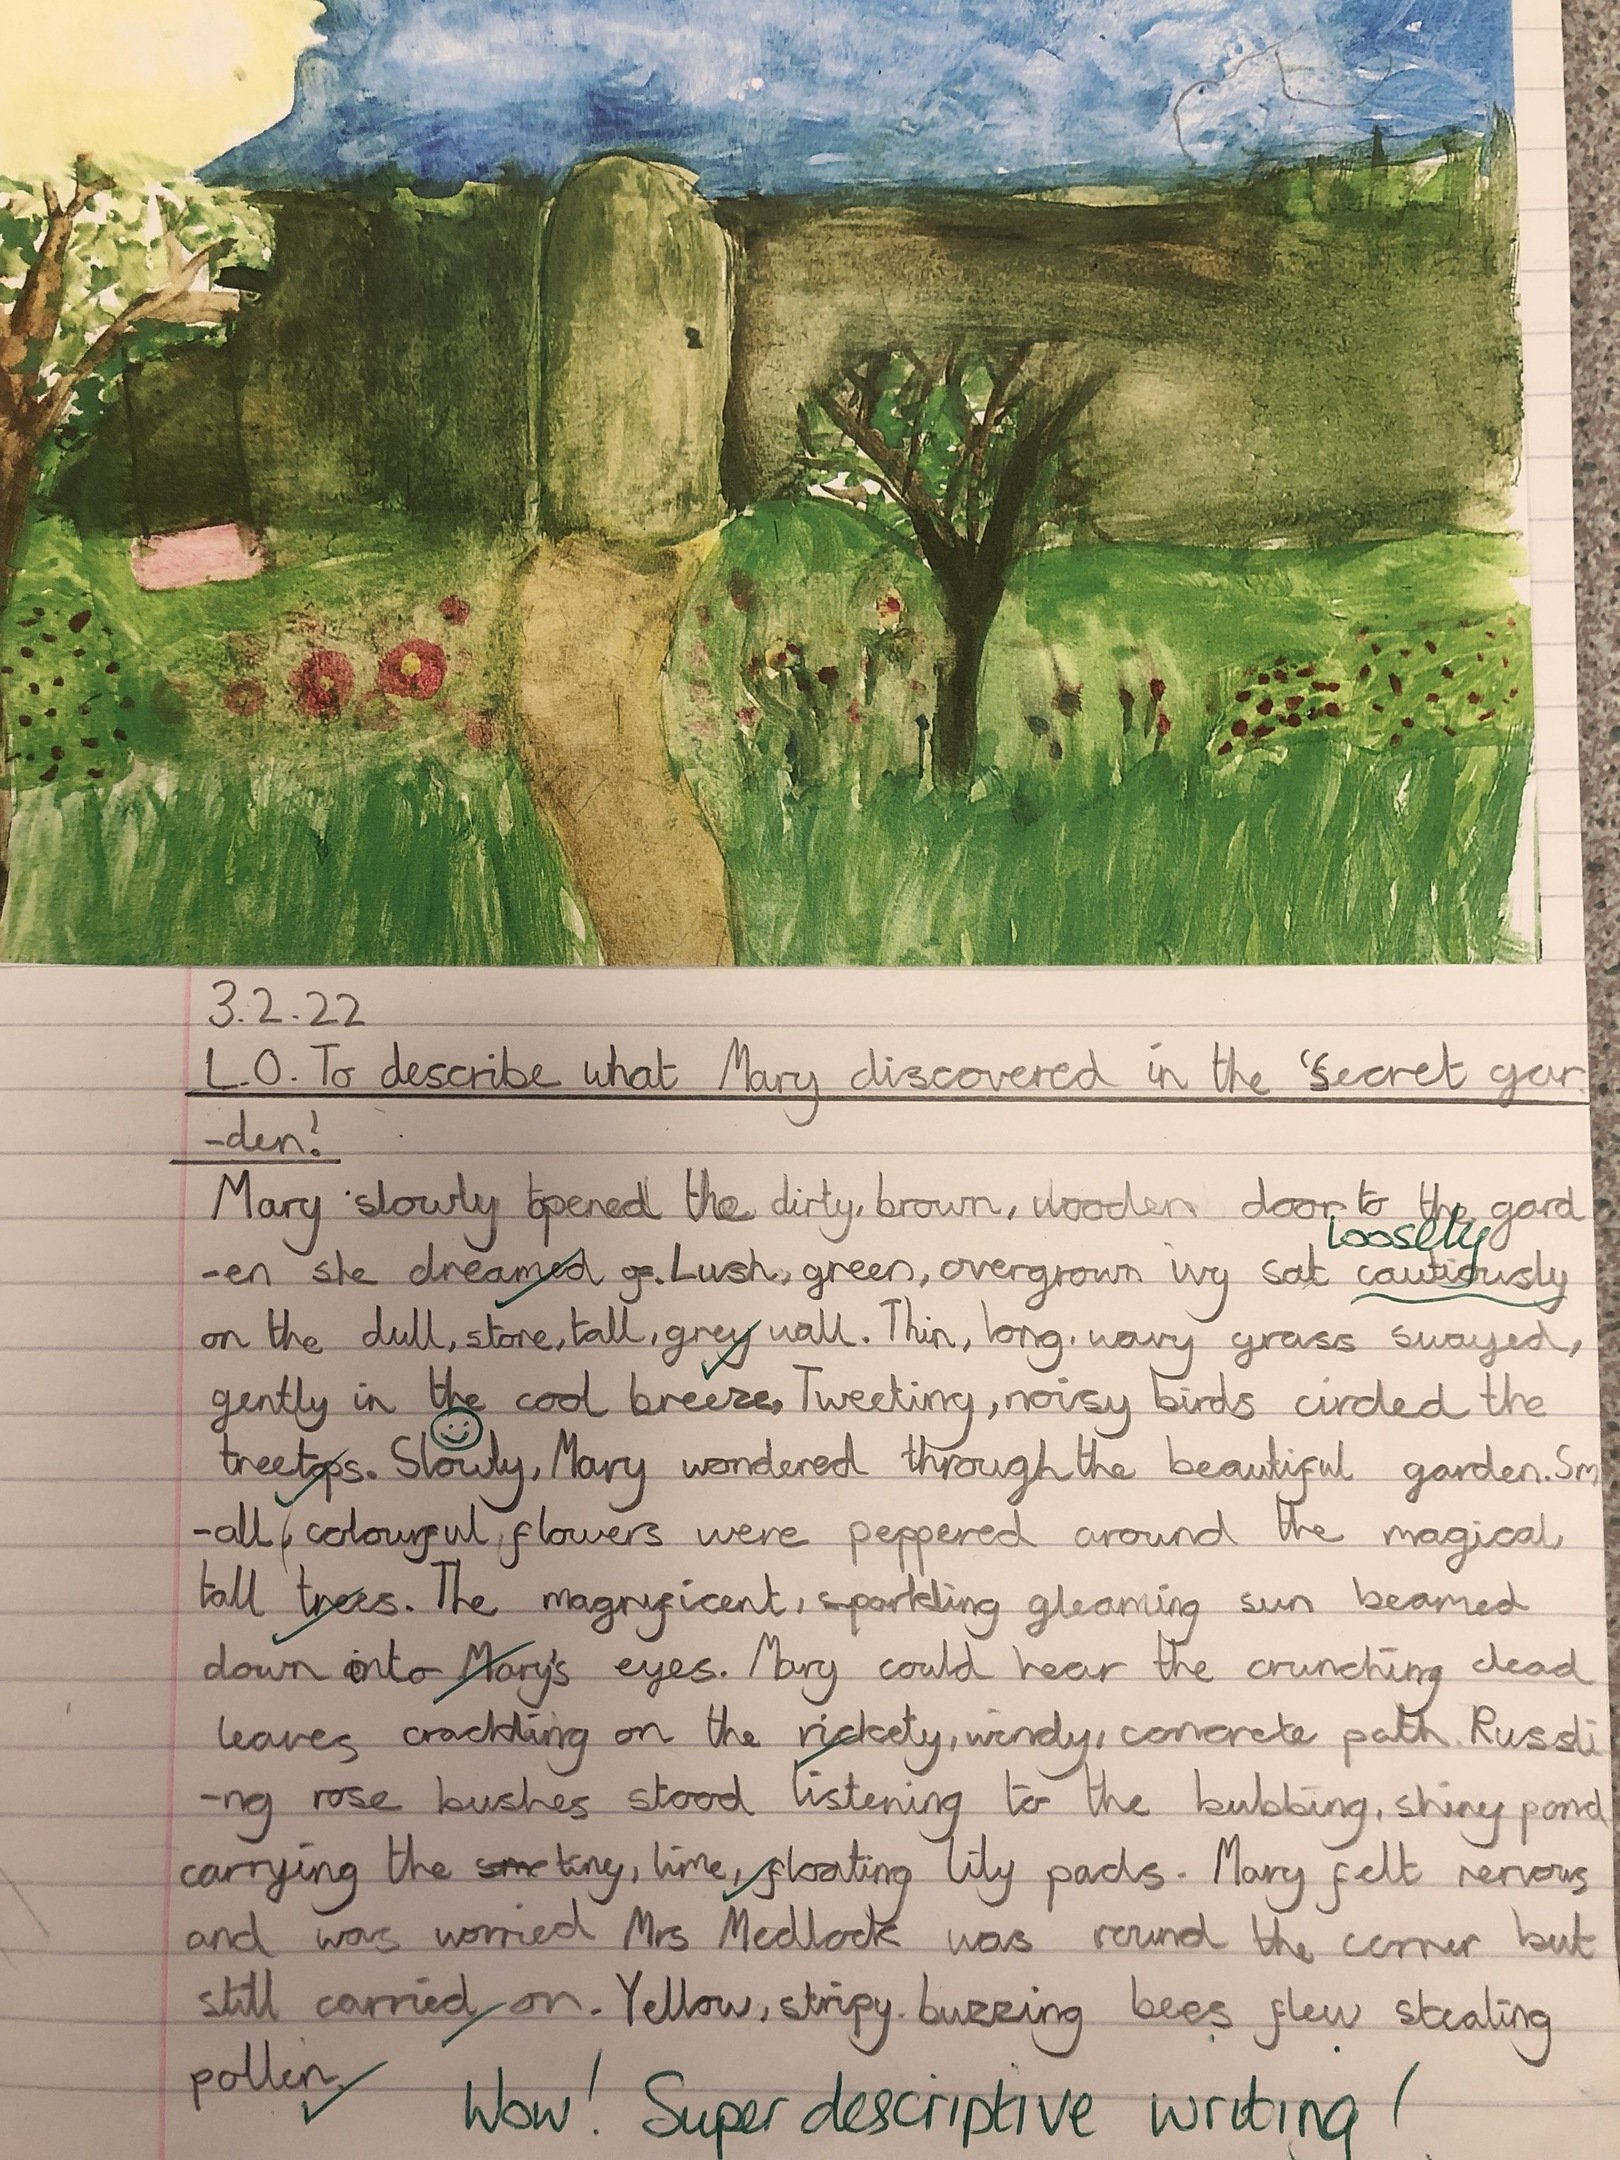 3.2.22
L.O. To describe what Mary discovered in the 'secret gar
-den!
Mary slowly opened the dirty, brown, wooden door to the gard
loosely
-en she dreamed of. Lush, green, overgrown ivy sat cautiously
on the dull, stone, tall, grey wall. Thin, long, wavy grass swayed,
gently in the cool breeze. Tweeting, noisy birds circled the
treetops. Slowly, Mary wondered through the beautiful garden. Sm
-all, colourful, flowers were peppered around the magical,
tall trees. The magnificent, sparkling gleaming sun beamed
down into Mary's eyes. Mary could hear the crunching dead
leaves crackling on the rickety, windy, concrete path. Russli
-ng rose bushes stood listening to the bubbing, shiny pond
carrying the tiny, lime, floating lily pads. Mary felt nervous
and was worried Mrs Medlock was round the corner but
still carried on. Yellow, stripy. buzzing bees flew stealing
pollen.
Wow! Super descriptive writing!